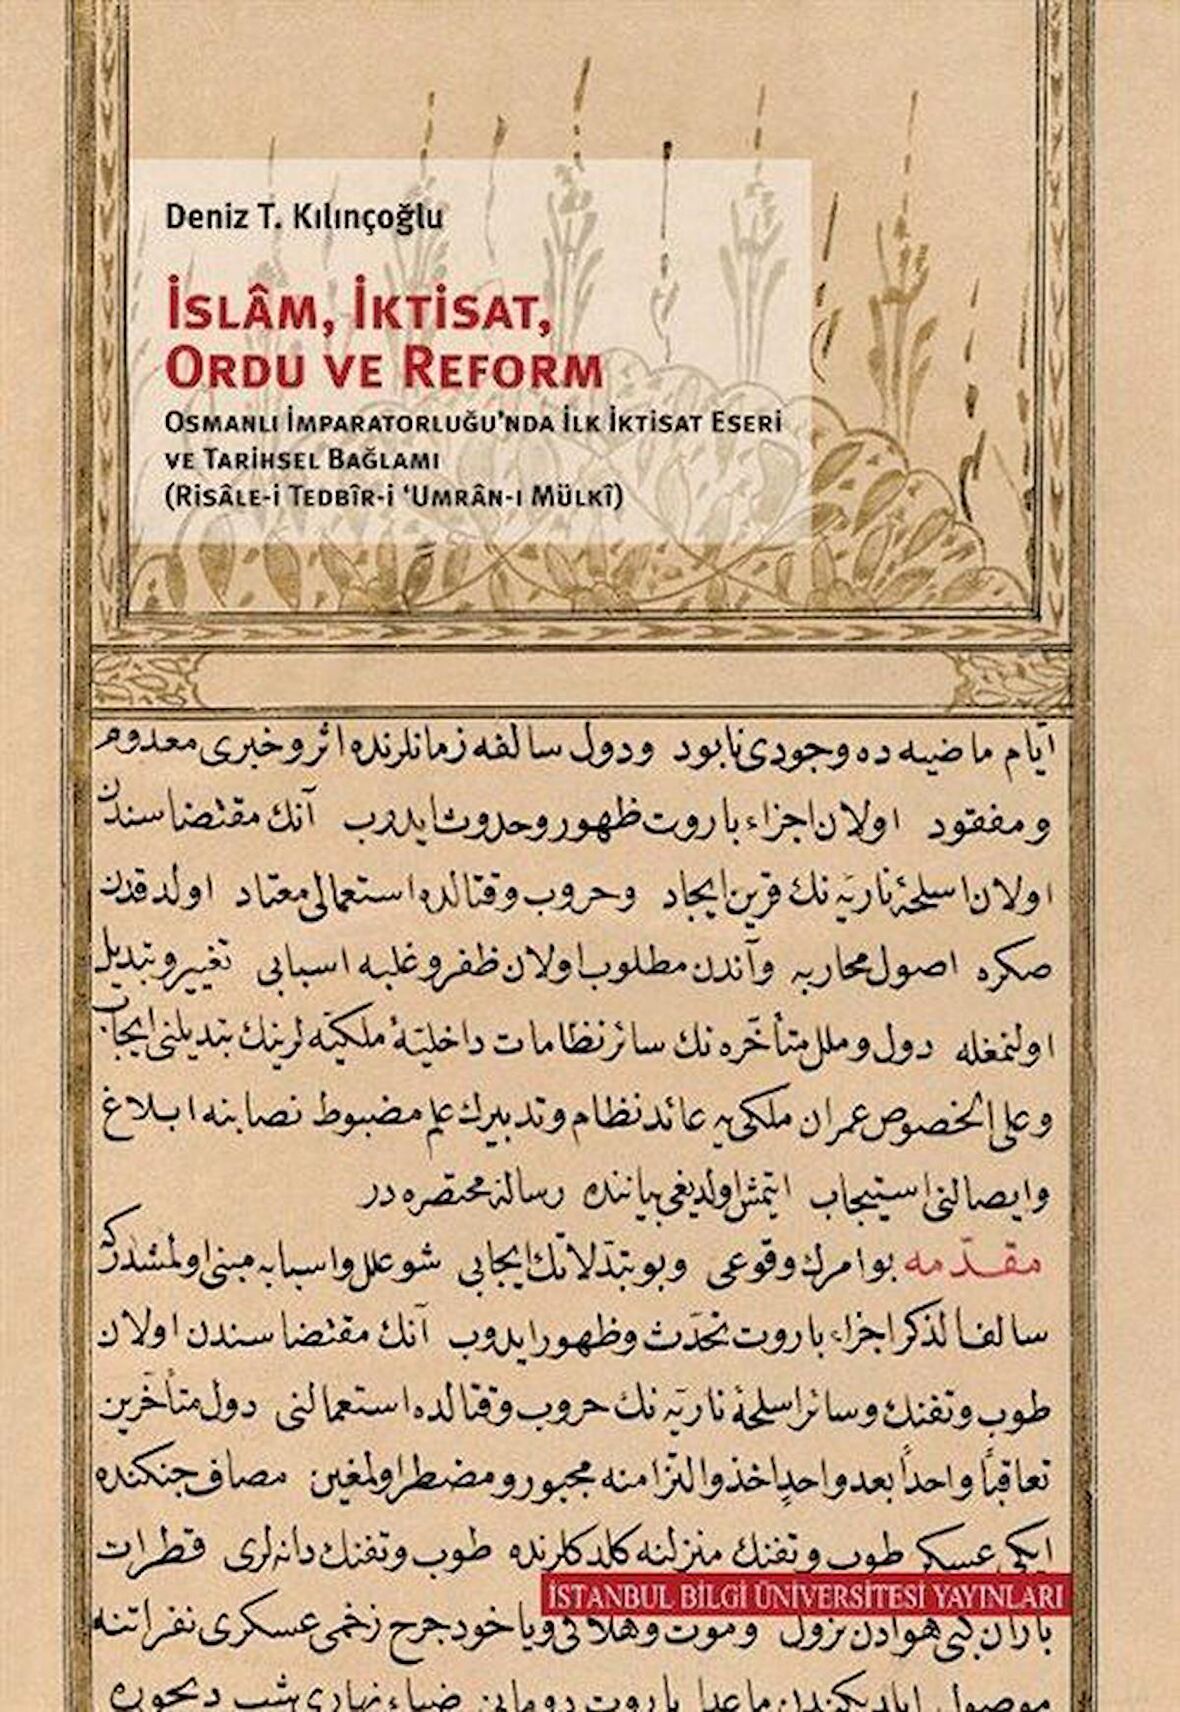 Deniz T. Kılınçoğlu
İSLÂM, İKTİSAT,
ORDU VE REFORM
OSMANLI İMPARATORLUĞU'NDA İLK İKTİSAT ESERİ
VE TARİHSEL BAĞLAMI
(RİSÂLE-İ TEDBÎR-İ ‘UMRÂN-I MÜLKÎ)
ايّام ماضيه ده وجودى نابود ودول سالفه زمانلرنده اثر وخبرى معدوم
ومفقود اولان اجزاء باروت ظهور وحدوث ايدوب آنك مقتضاسندن
اولان اسلحۀ ناريّه نك قرين ايجاد وحروب وقتالده استعمالى معتاد اولدقدن
صكره اصول محاربه وآندن مطلوب اولان ظفر وغلبه اسبابى تغيير وتبديل
اولنمغله دول وملل متأخّره نك سائر نظامات داخليّۀ ملكيّه لرينك تبديلنى ايجاب
وعلى الخصوص عمران ملكى يه عائد نظام وتدبيرك علم مضبوط نصابنه ابلاغ
وايصالنى استيجاب ايتمش اولديغى بياننده رسالۀ مختصره در
مقدّمه بو امرك وقوعى وبو تبدّلاتك ايجابى شو علل واسبابه مبنى اولمشدركه
سالف الذكر اجزاء باروت تحدّث وظهور ايدوب آنك مقتضاسندن اولان
طوب وتفنك وسائر اسلحۀ ناريّه نك حروب وقتالده استعمالنى دول متأخّرين
تعاقباً واحداً بعد واحدٍ اخذ والتزامنه مجبور ومضطر اولمغين مصاف جنكنده
ايكى عسكر طوب وتفنك منزلنه كلدكلرنده طوب وتفنك دانه لرى قطرات
İSTANBUL BİLGİ ÜNİVERSİTESİ YAYINLARI
باران كبى هوادن نزول وموت وهلاكى وياخود جرح زخمى عسكرى نفراتنه
باروت دومانى ضياء نهارى شب